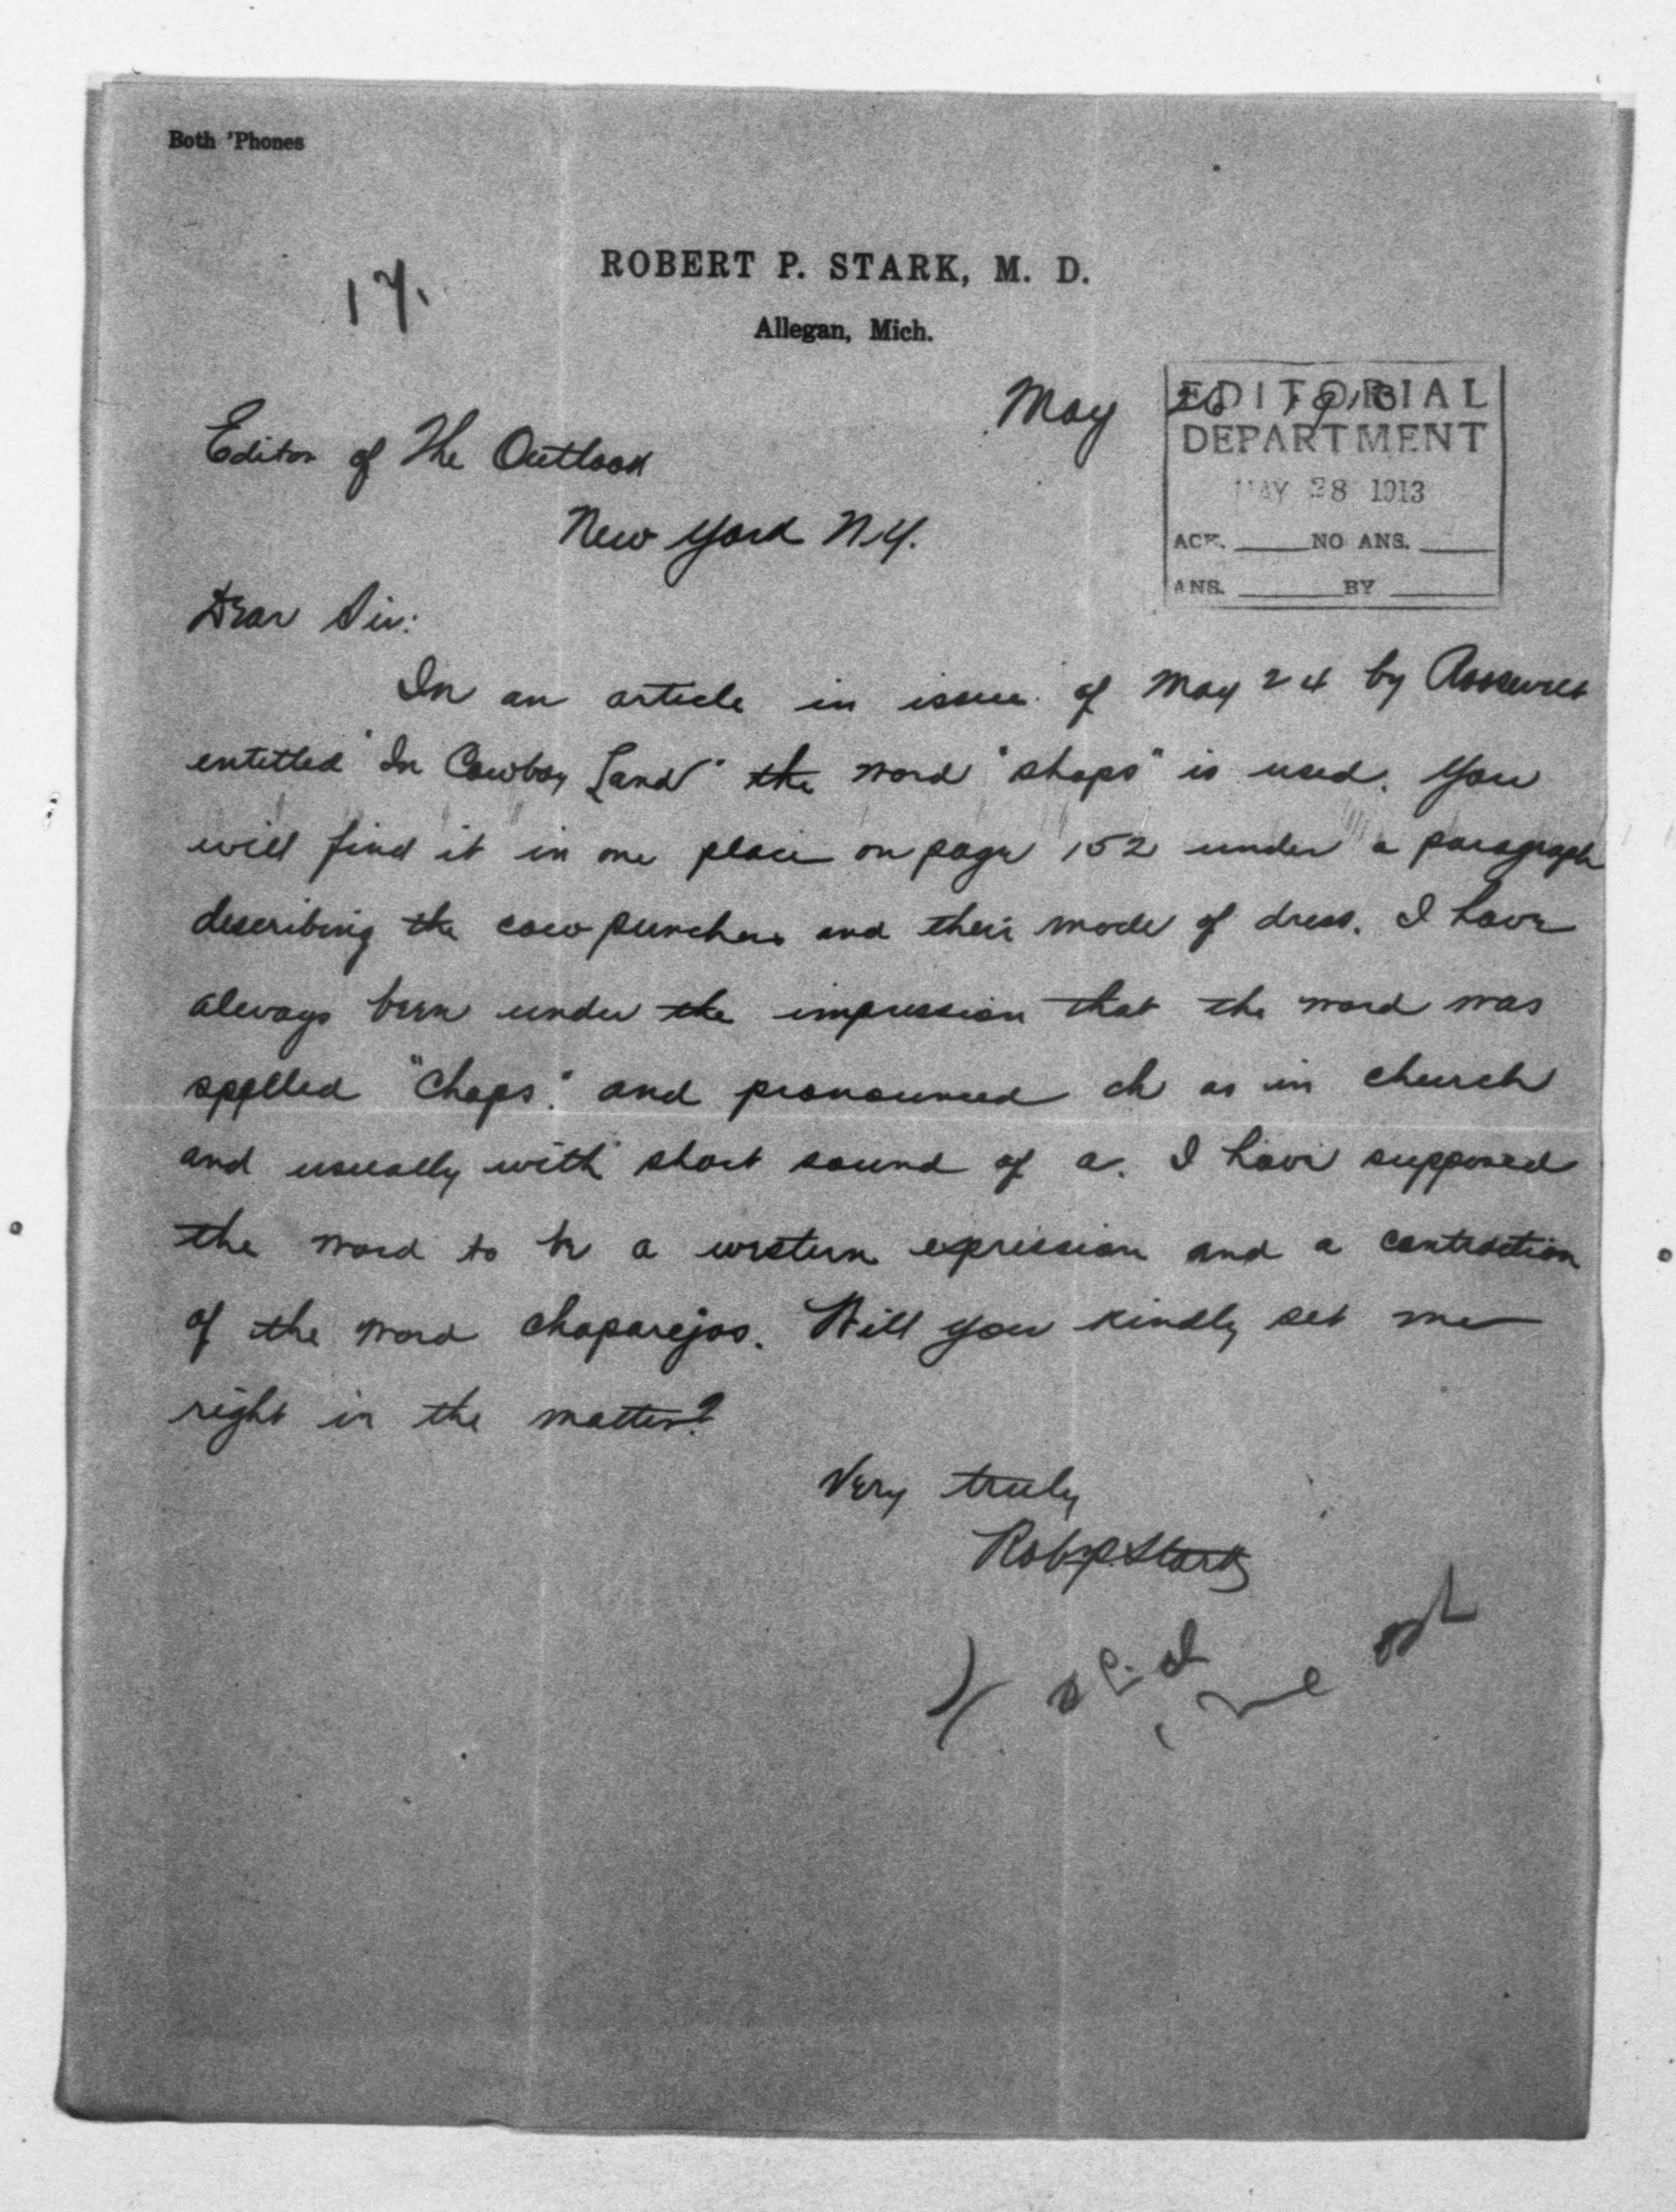 Both 'Phones
ROBERT P. STARK, M. D.
Allegan, Mich.
17.
May 26 1913
EDITORIAL
DEPARTMENT
MAY 28 1913
ACK. NO ANS.
ANS. BY
Editor of The Outlook
New York N.Y.
Dear Sir:
In an article in issue of May 24 by Roosevelt
entitled "In Cowboy Land" the word "shaps" is used. You
will find it in one place on page 152 under a paragraph
describing the cow punchers and their mode of dress. I have
always been under the impression that the word was
spelled "Chaps". and pronounced ch as in church
and usually with short sound of a. I have supposed
the word to be a western expression and a contraction
of the word chaparejos. Will you kindly set me
right in the matter?
Very truly
Robt P. Stark